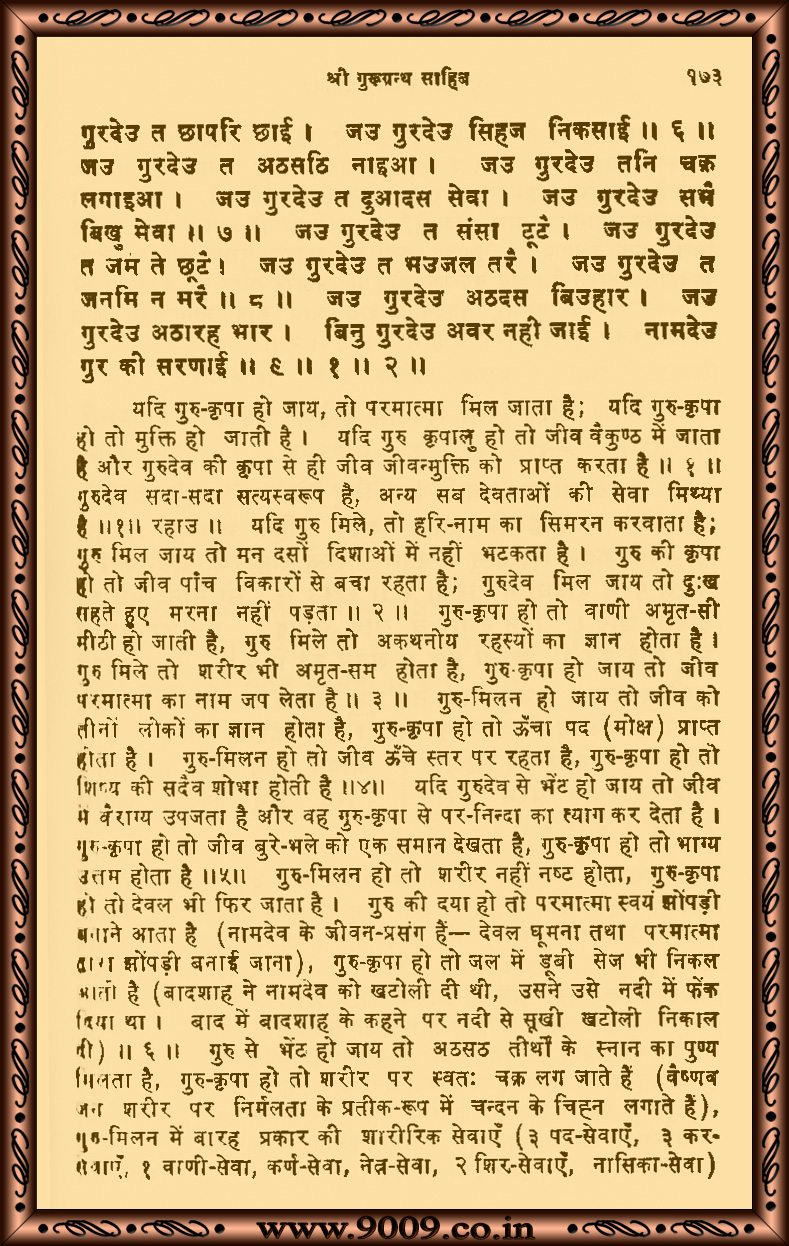 श्री गुरूग्रन्थ साहिब १७३
गुरदेउ त छापरि छाई । जउ गुरदेउ सिहज निकसाई ॥ ६ ॥
जउ गुरदेउ त अठसठि नाइआ । जउ गुरदेउ तनि चक्र
लगाइआ । जउ गुरदेउ त दुआदस सेवा । जउ गुरदेउ सभै
बिखु मेवा ॥ ७ ॥ जउ गुरदेउ त संसा टूटै । जउ गुरदेउ
त जम ते छूटै । जउ गुरदेउ त भउजल तरै । जउ गुरदेउ त
जनमि न मरै ॥ ८ ॥ जउ गुरदेउ अठदस बिउहार । जउ
गुरदेउ अठारह भार । बिनु गुरदेउ अवर नही जाई । नामदेउ
गुर की सरणाई ॥ ९ ॥ १ ॥ २ ॥
यदि गुरु-कृपा हो जाय, तो परमात्मा मिल जाता है; यदि गुरु-कृपा
हो तो मुक्ति हो जाती है । यदि गुरु कृपालु हो तो जीव वैकुण्ठ में जाता
है और गुरुदेव की कृपा से ही जीव जीवन्मुक्ति को प्राप्त करता है ॥ १ ॥
गुरुदेव सदा-सदा सत्यस्वरूप है, अन्य सब देवताओं की सेवा मिथ्या
है ॥१॥ रहाउ ॥ यदि गुरु मिले, तो हरि-नाम का सिमरन करवाता है;
गुरु मिल जाय तो मन दसों दिशाओं में नहीं भटकता है । गुरु की कृपा
हो तो जीव पांच विकारों से बचा रहता है; गुरुदेव मिल जाय तो दुःख
सहते हुए मरना नहीं पड़ता ॥ २ ॥ गुरु-कृपा हो तो वाणी अमृत-सी
मीठी हो जाती है, गुरु मिले तो अकथनीय रहस्यों का ज्ञान होता है ।
गुरु मिले तो शरीर भी अमृत-सम होता है, गुरु-कृपा हो जाय तो जीव
परमात्मा का नाम जप लेता है ॥ ३ ॥ गुरु-मिलन हो जाय तो जीव को
तीनों लोकों का ज्ञान होता है, गुरु-कृपा हो तो ऊँचा पद (मोक्ष) प्राप्त
होता है । गुरु-मिलन हो तो जीव ऊँचे स्तर पर रहता है, गुरु-कृपा हो तो
शिष्य की सदैव शोभा होती है ॥४॥ यदि गुरुदेव से भेंट हो जाय तो जीव
में वैराग्य उपजता है और वह गुरु-कृपा से पर-निन्दा का त्याग कर देता है ।
गुरु-कृपा हो तो जीव बुरे-भले को एक समान देखता है, गुरु-कृपा हो तो भाग्य
उत्तम होता है ॥५॥ गुरु-मिलन हो तो शरीर नहीं नष्ट होता, गुरु-कृपा
हो तो देवल भी फिर जाता है । गुरु की दया हो तो परमात्मा स्वयं झोंपड़ी
बनाने आता है (नामदेव के जीवन-प्रसंग हैं— देवल घूमना तथा परमात्मा
द्वारा झोंपड़ी बनाई जाना), गुरु-कृपा हो तो जल में डूबी सेज भी निकल
आती है (बादशाह ने नामदेव को खटोली दी थी, उसने उसे नदी में फेंक
दिया था । बाद में बादशाह के कहने पर नदी से सूखी खटोली निकाल
दी) ॥ ६ ॥ गुरु से भेंट हो जाय तो अठसठ तीर्थों के स्नान का पुण्य
मिलता है, गुरु-कृपा हो तो शरीर पर स्वतः चक्र लग जाते हैं (वैष्णव
जन शरीर पर निर्मलता के प्रतीक-रूप में चन्दन के चिह्न लगाते हैं),
गुरु-मिलन में बारह प्रकार की शारीरिक सेवाएँ (३ पद-सेवाएँ, ३ कर-
सेवाएँ, १ वाणी-सेवा, कर्ण-सेवा, नेत्र-सेवा, २ शिर-सेवाएँ, नासिका-सेवा)
www.9009.co.in